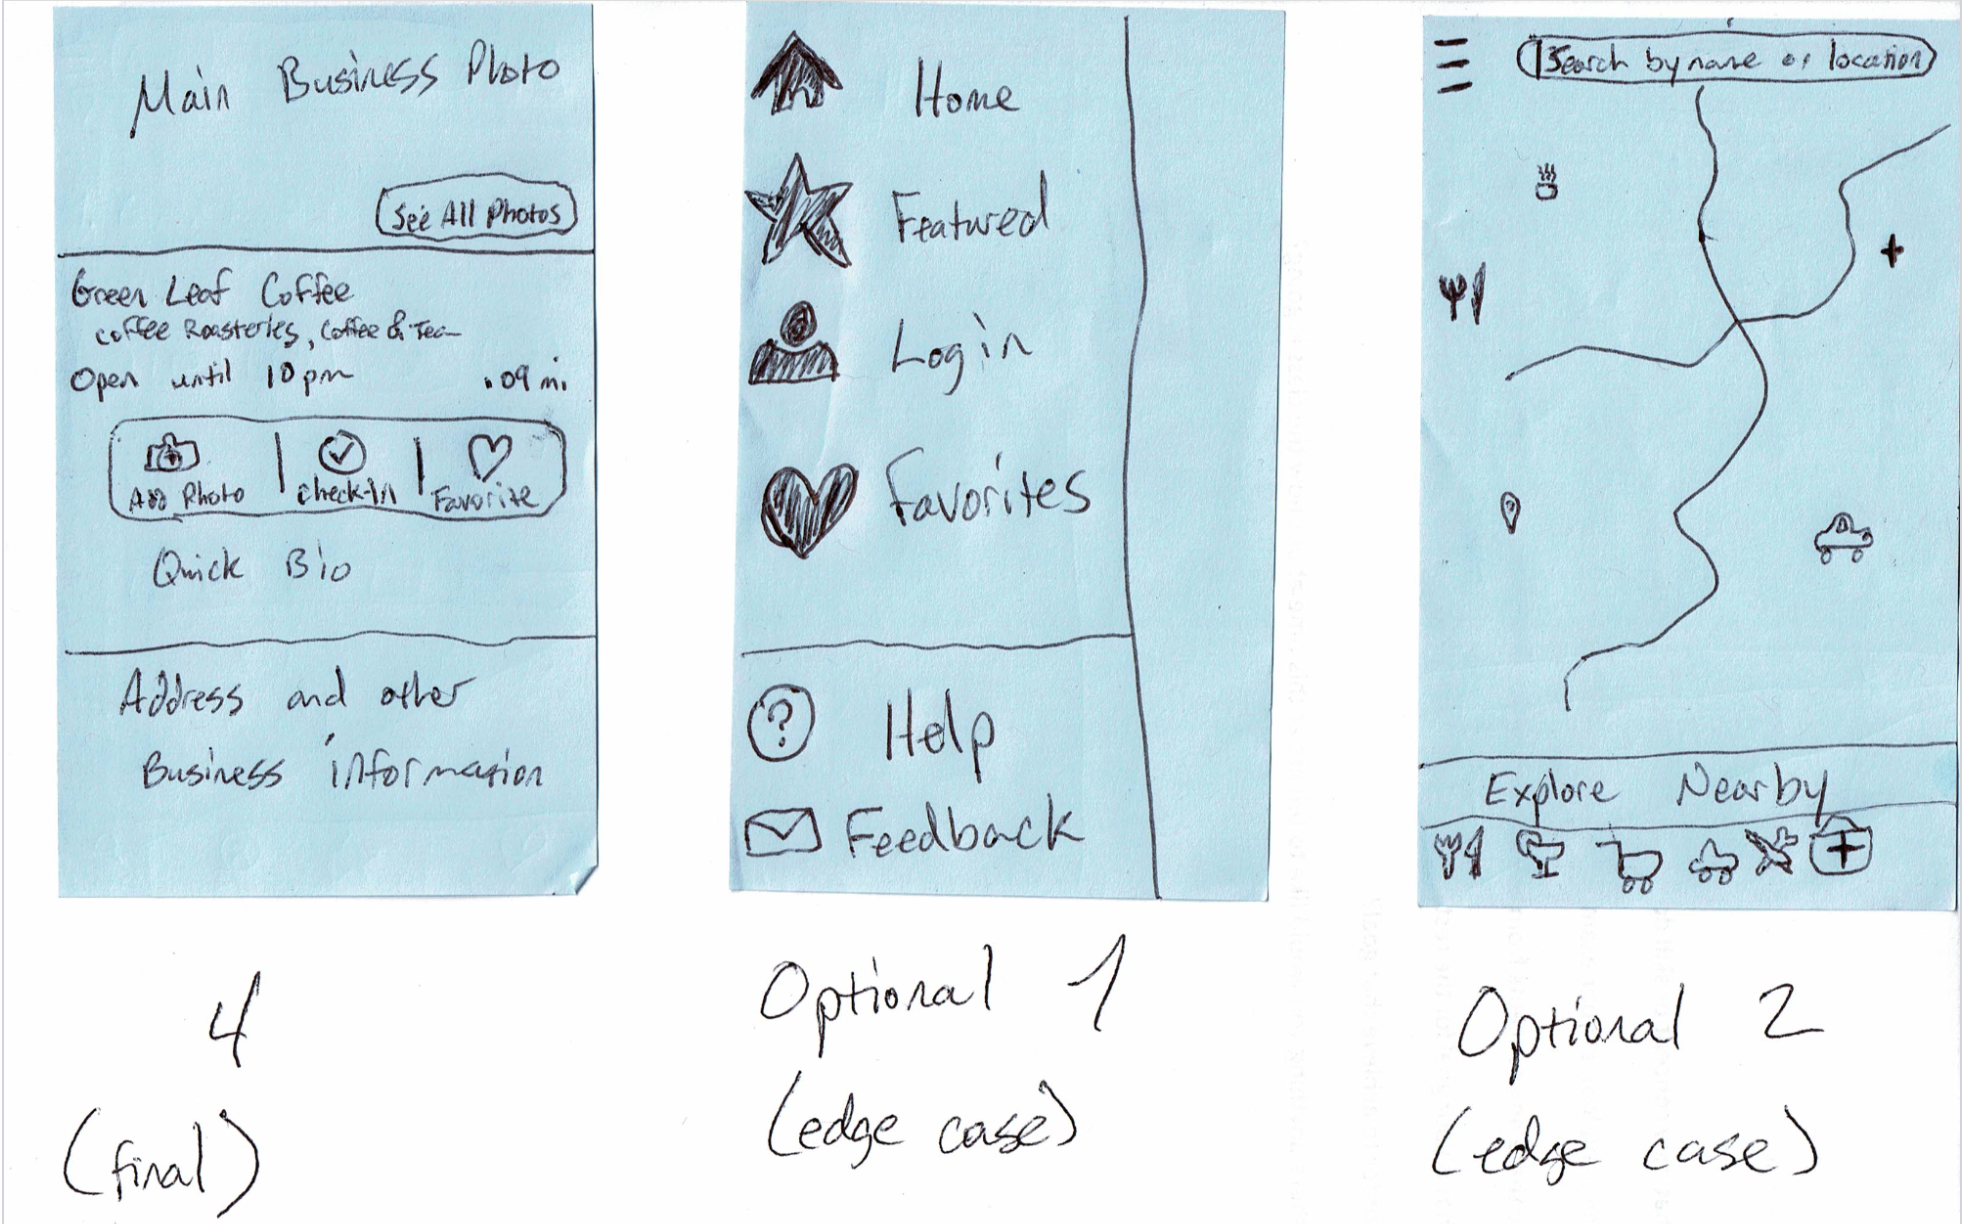 Main Business Photo
See All Photos
Green Leaf Coffee
Coffee Roasteries, Coffee & Tea
Open until 10pm .09 mi.
Add Photo Check-In Favorite
Quick Bio
Address and other
Business information
4
(final)
Home
Featured
Login
Favorites
?
Help
Feedback
Optional 1
(edge case)
Search by name or location
Explore Nearby
Optional 2
(edge case)